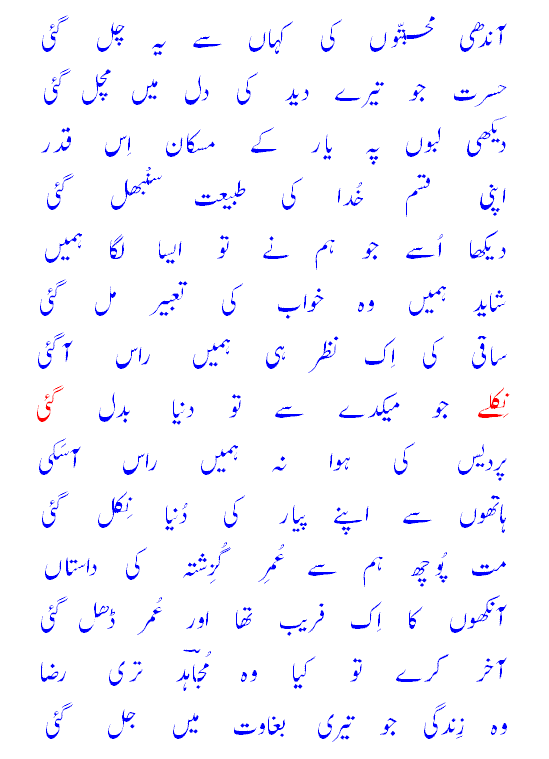 آندھی محبتّوں کی کہاں سے یہ چل گئی
حسرت جو تیرے دید کی دل میں مچل گئی
دیکھی لبوں پہ یار کے مسکان اِس قدر
اپنی قسم خُدا کی طبیعت سنْبھل گئی
دیکھا اُسے جو ہم نے تو ایسا لگا ہمیں
شاید ہمیں وہ خواب کی تعبیر مل گئی
ساقی کی اِک نظر ہی ہمیں راس آ گئی
نِکلے جو میکدے سے تو دنیا بدل گئی
پردیس کی ہوا نہ ہمیں راس آسَکی
ہاتھوں سے اپنے پیار کی دُنیا نِکل گئی
مت پُوچھ ہم سے عُمرِ گُزِشتہ کی داستاں
آنکھوں کا اِک فریب تھا اور عُمر ڈھل گئی
آخر کرے تو کیا وہ مُجاہدؔ تری رضا
وہ زِندگی جو تیری بغاوت میں جل گئی